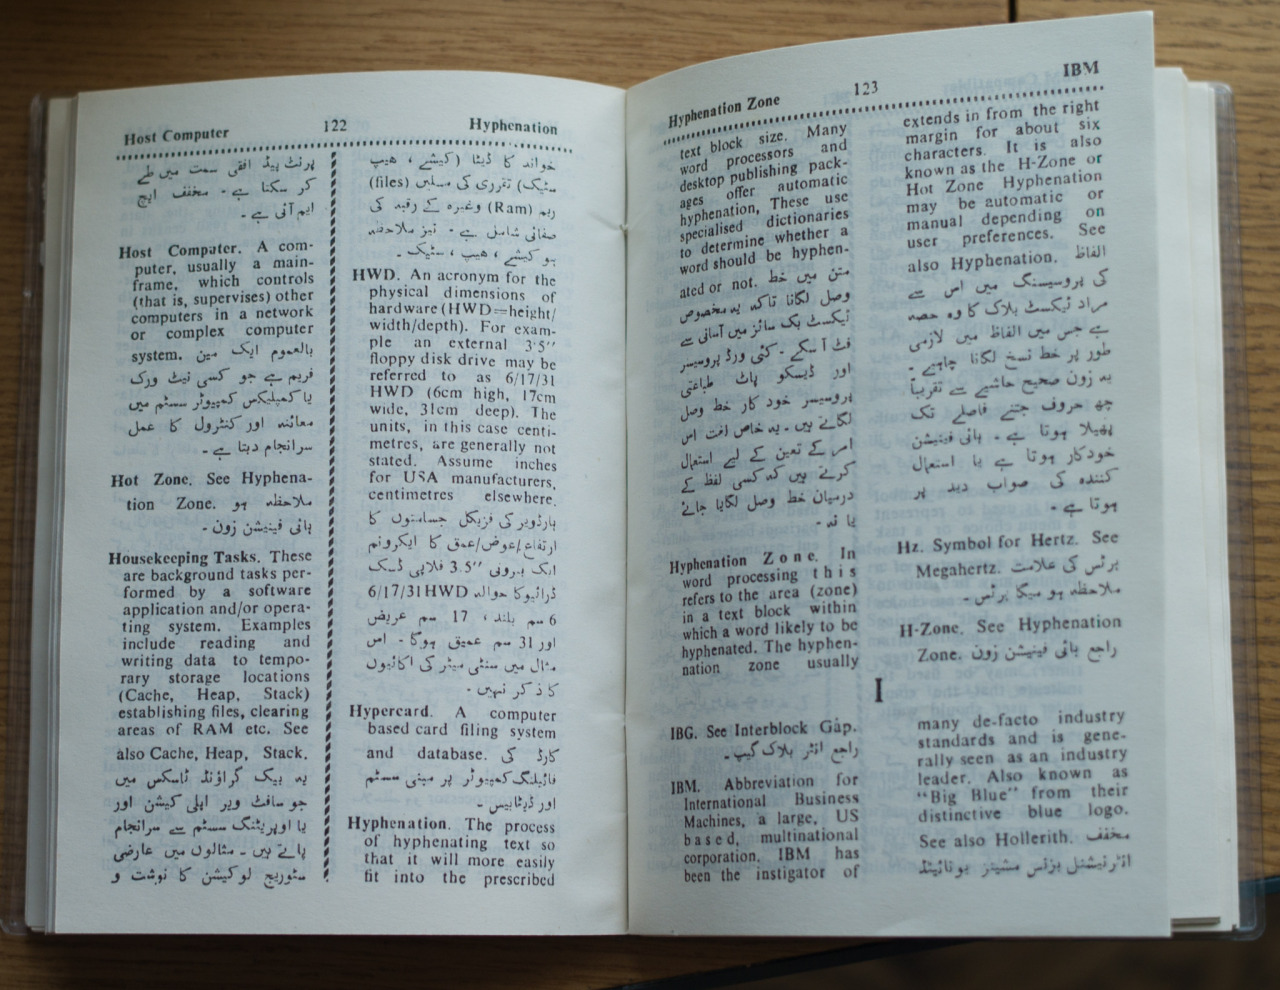 Host Computer 122 Hyphenation
پرنٹ ہیڈ افقی سمت میں طے
کر سکتا ہے۔ مخفف ایچ
ایم آئی ہے۔
Host Computer. A com-
puter, usually a main-
frame, which controls
(that is, supervises) other
computers in a network
or complex computer
system. بالعموم ایک مین
فریم ہے جو کسی نیٹ ورک
یا کمپلیکس کمپیوٹر سسٹم میں
معائنہ اور کنٹرول کا عمل
سرانجام دیتا ہے۔
Hot Zone. See Hyphena-
tion Zone. ملاحظہ ہو
ہائی فینیشن زون۔
Housekeeping Tasks. These
are background tasks per-
formed by a software
application and/or opera-
ting system. Examples
include reading and
writing data to tempo-
rary storage locations
(Cache, Heap, Stack)
establishing files, clearing
areas of RAM etc. See
also Cache, Heap, Stack.
یہ بیک گراؤنڈ ٹاسکس ہیں
جو سافٹ ویر اپلی کیشن اور
یا اوپریٹنگ سسٹم سے سرانجام
پاتے ہیں۔ مثالوں میں عارضی
سٹوریج لوکیشن کا نوشت و
خواند کا ڈیٹا (کیشے، ہیپ
سٹیک) تقرری کی مسلیں (files)
ریم (Ram) وغیرہ کے رقبہ کی
صفائی شامل ہے۔ نیز ملاحظہ
ہو کیشے، ہیپ، سٹیک۔
HWD. An acronym for the
physical dimensions of
hardware (HWD=height/
width/depth). For exam-
ple an external 3·5″
floppy disk drive may be
referred to as 6/17/31
HWD (6cm high, 17cm
wide, 31cm deep). The
units, in this case centi-
metres, are generally not
stated. Assume inches
for USA manufacturers,
centimetres elsewhere.
ہارڈویر کی فزیکل جسامتوں کا
ارتفاع/عوض/عمق کا ایکرونم
ایک بیرونی ″3.5 فلاپی ڈسک
ڈرائیو کا حوالہ 6/17/31 HWD
6 سم بلند، 17 سم عریض
اور 31 سم عمیق ہوگا۔ اس
مثال میں سنٹی میٹر کی اکائیوں
کا ذکر نہیں۔
Hypercard. A computer
based card filing system
and database. کارڈ کی
فائیلنگ کمپیوٹر پر مبنی سسٹم
اور ڈیٹابیس۔
Hyphenation. The process
of hyphenating text so
that it will more easily
fit into the prescribed
Hyphenation Zone 123 IBM
text block size. Many
word processors and
desktop publishing pack-
ages offer automatic
hyphenation, These use
specialised dictionaries
to determine whether a
word should be hyphen-
ated or not. متن میں خط
وصل لگانا تاکہ یہ مخصوص
ٹیکسٹ بک سائز میں آسانی سے
فٹ آ سکے۔ کئی ورڈ پروسیسر
اور ڈیسکو پاٹ طباعتی
پروسیسر خود کار خط وصل
لگاتے ہیں۔ یہ خاص لغت اس
امر کے تعین کے لیے استعمال
کرتے ہیں کہ کسی لفظ کے
درمیان خط وصل لگایا جائے
یا نہ۔
Hyphenation Zone. In
word processing this
refers to the area (zone)
in a text block within
which a word likely to be
hyphenated. The hyphen-
nation zone usually
extends in from the right
margin for about six
characters. It is also
known as the H-Zone or
Hot Zone Hyphenation
may be automatic or
manual depending on
user preferences. See
also Hyphenation. الفاظ
کی پروسیسنگ میں اس سے
مراد ٹیکسٹ بلاک کا وہ حصہ
ہے جس میں الفاظ میں لازمی
طور پر خط نسخ لگانا چاہیے۔
یہ زون صحیح حاشیے سے تقریباً
چھ حروف جتنے فاصلے تک
پھیلا ہوتا ہے۔ ہائی فینیشن
خودکار ہوتا ہے یا استعمال
کنندہ کی صواب دید پر
ہوتا ہے۔
Hz. Symbol for Hertz. See
Megahertz. ہرٹس کی علامت
ملاحظہ ہو میگا ہرٹس۔
H-Zone. See Hyphenation
Zone. راجع ہائی فینیشن زون
I
IBG. See Interblock Gap.
راجع انٹر بلاک گیپ۔
IBM. Abbreviation for
International Business
Machines, a large, US
based, multinational
corporation. IBM has
been the instigator of
many de-facto industry
standards and is gene-
rally seen as an industry
leader. Also known as
“Big Blue” from their
distinctive blue logo.
See also Hollerith. مخفف
انٹرنیشنل بزنس مشینز یونائیٹڈ